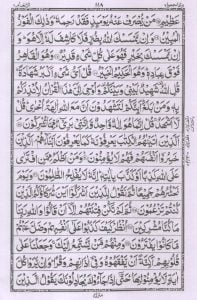 ١١٨
عَظِيْمٍ۝ مَنْ يُّصْرَفْ عَنْهُ يَوْمَئِذٍ فَقَدْ رَحِمَهٗ ؕ وَذٰلِكَ الْفَوْزُ
الْمُبِيْنُ۝ وَاِنْ يَّمْسَسْكَ اللّٰهُ بِضُرٍّ فَلَا كَاشِفَ لَهٗۤ اِلَّا هُوَ ؕ
وَاِنْ يَّمْسَسْكَ بِخَيْرٍ فَهُوَ عَلٰى كُلِّ شَيْءٍ قَدِيْرٌ۝ وَهُوَ الْقَاهِرُ
فَوْقَ عِبَادِهٖ ؕ وَهُوَ الْحَكِيْمُ الْخَبِيْرُ۝ قُلْ اَيُّ شَيْءٍ اَكْبَرُ شَهَادَةً ؕ
قُلِ اللّٰهُ ۙ شَهِيْدٌۢ بَيْنِيْ وَبَيْنَكُمْ ۫ وَاُوْحِيَ اِلَيَّ هٰذَا الْقُرْاٰنُ لِاُنْذِرَكُمْ
بِهٖ وَمَنْۢ بَلَغَ ؕ اَئِنَّكُمْ لَتَشْهَدُوْنَ اَنَّ مَعَ اللّٰهِ اٰلِهَةً اُخْرٰى ؕ قُلْ لَّاۤ
اَشْهَدُ ۚ قُلْ اِنَّمَا هُوَ اِلٰهٌ وَّاحِدٌ وَّاِنَّنِيْ بَرِيْٓءٌ مِّمَّا تُشْرِكُوْنَ۝
اَلَّذِيْنَ اٰتَيْنٰهُمُ الْكِتٰبَ يَعْرِفُوْنَهٗ كَمَا يَعْرِفُوْنَ اَبْنَآءَهُمْ ۘ اَلَّذِيْنَ
خَسِرُوْۤا اَنْفُسَهُمْ فَهُمْ لَا يُؤْمِنُوْنَ۝ وَمَنْ اَظْلَمُ مِمَّنِ افْتَرٰى
عَلَى اللّٰهِ كَذِبًا اَوْ كَذَّبَ بِاٰيٰتِهٖ ؕ اِنَّهٗ لَا يُفْلِحُ الظّٰلِمُوْنَ۝ وَيَوْمَ
نَحْشُرُهُمْ جَمِيْعًا ثُمَّ نَقُوْلُ لِلَّذِيْنَ اَشْرَكُوْۤا اَيْنَ شُرَكَآؤُكُمُ الَّذِيْنَ
كُنْتُمْ تَزْعُمُوْنَ۝ ثُمَّ لَمْ تَكُنْ فِتْنَتُهُمْ اِلَّاۤ اَنْ قَالُوْا وَاللّٰهِ رَبِّنَا
مَا كُنَّا مُشْرِكِيْنَ۝ اُنْظُرْ كَيْفَ كَذَبُوْا عَلٰۤى اَنْفُسِهِمْ وَضَلَّ عَنْهُمْ
مَّا كَانُوْا يَفْتَرُوْنَ۝ وَمِنْهُمْ مَّنْ يَّسْتَمِعُ اِلَيْكَ ۚ وَجَعَلْنَا عَلٰى
قُلُوْبِهِمْ اَكِنَّةً اَنْ يَّفْقَهُوْهُ وَفِيْۤ اٰذَانِهِمْ وَقْرًا ؕ وَاِنْ يَّرَوْا كُلَّ
اٰيَةٍ لَّا يُؤْمِنُوْا بِهَا ؕ حَتّٰۤى اِذَا جَآءُوْكَ يُجَادِلُوْنَكَ يَقُوْلُ الَّذِيْنَ